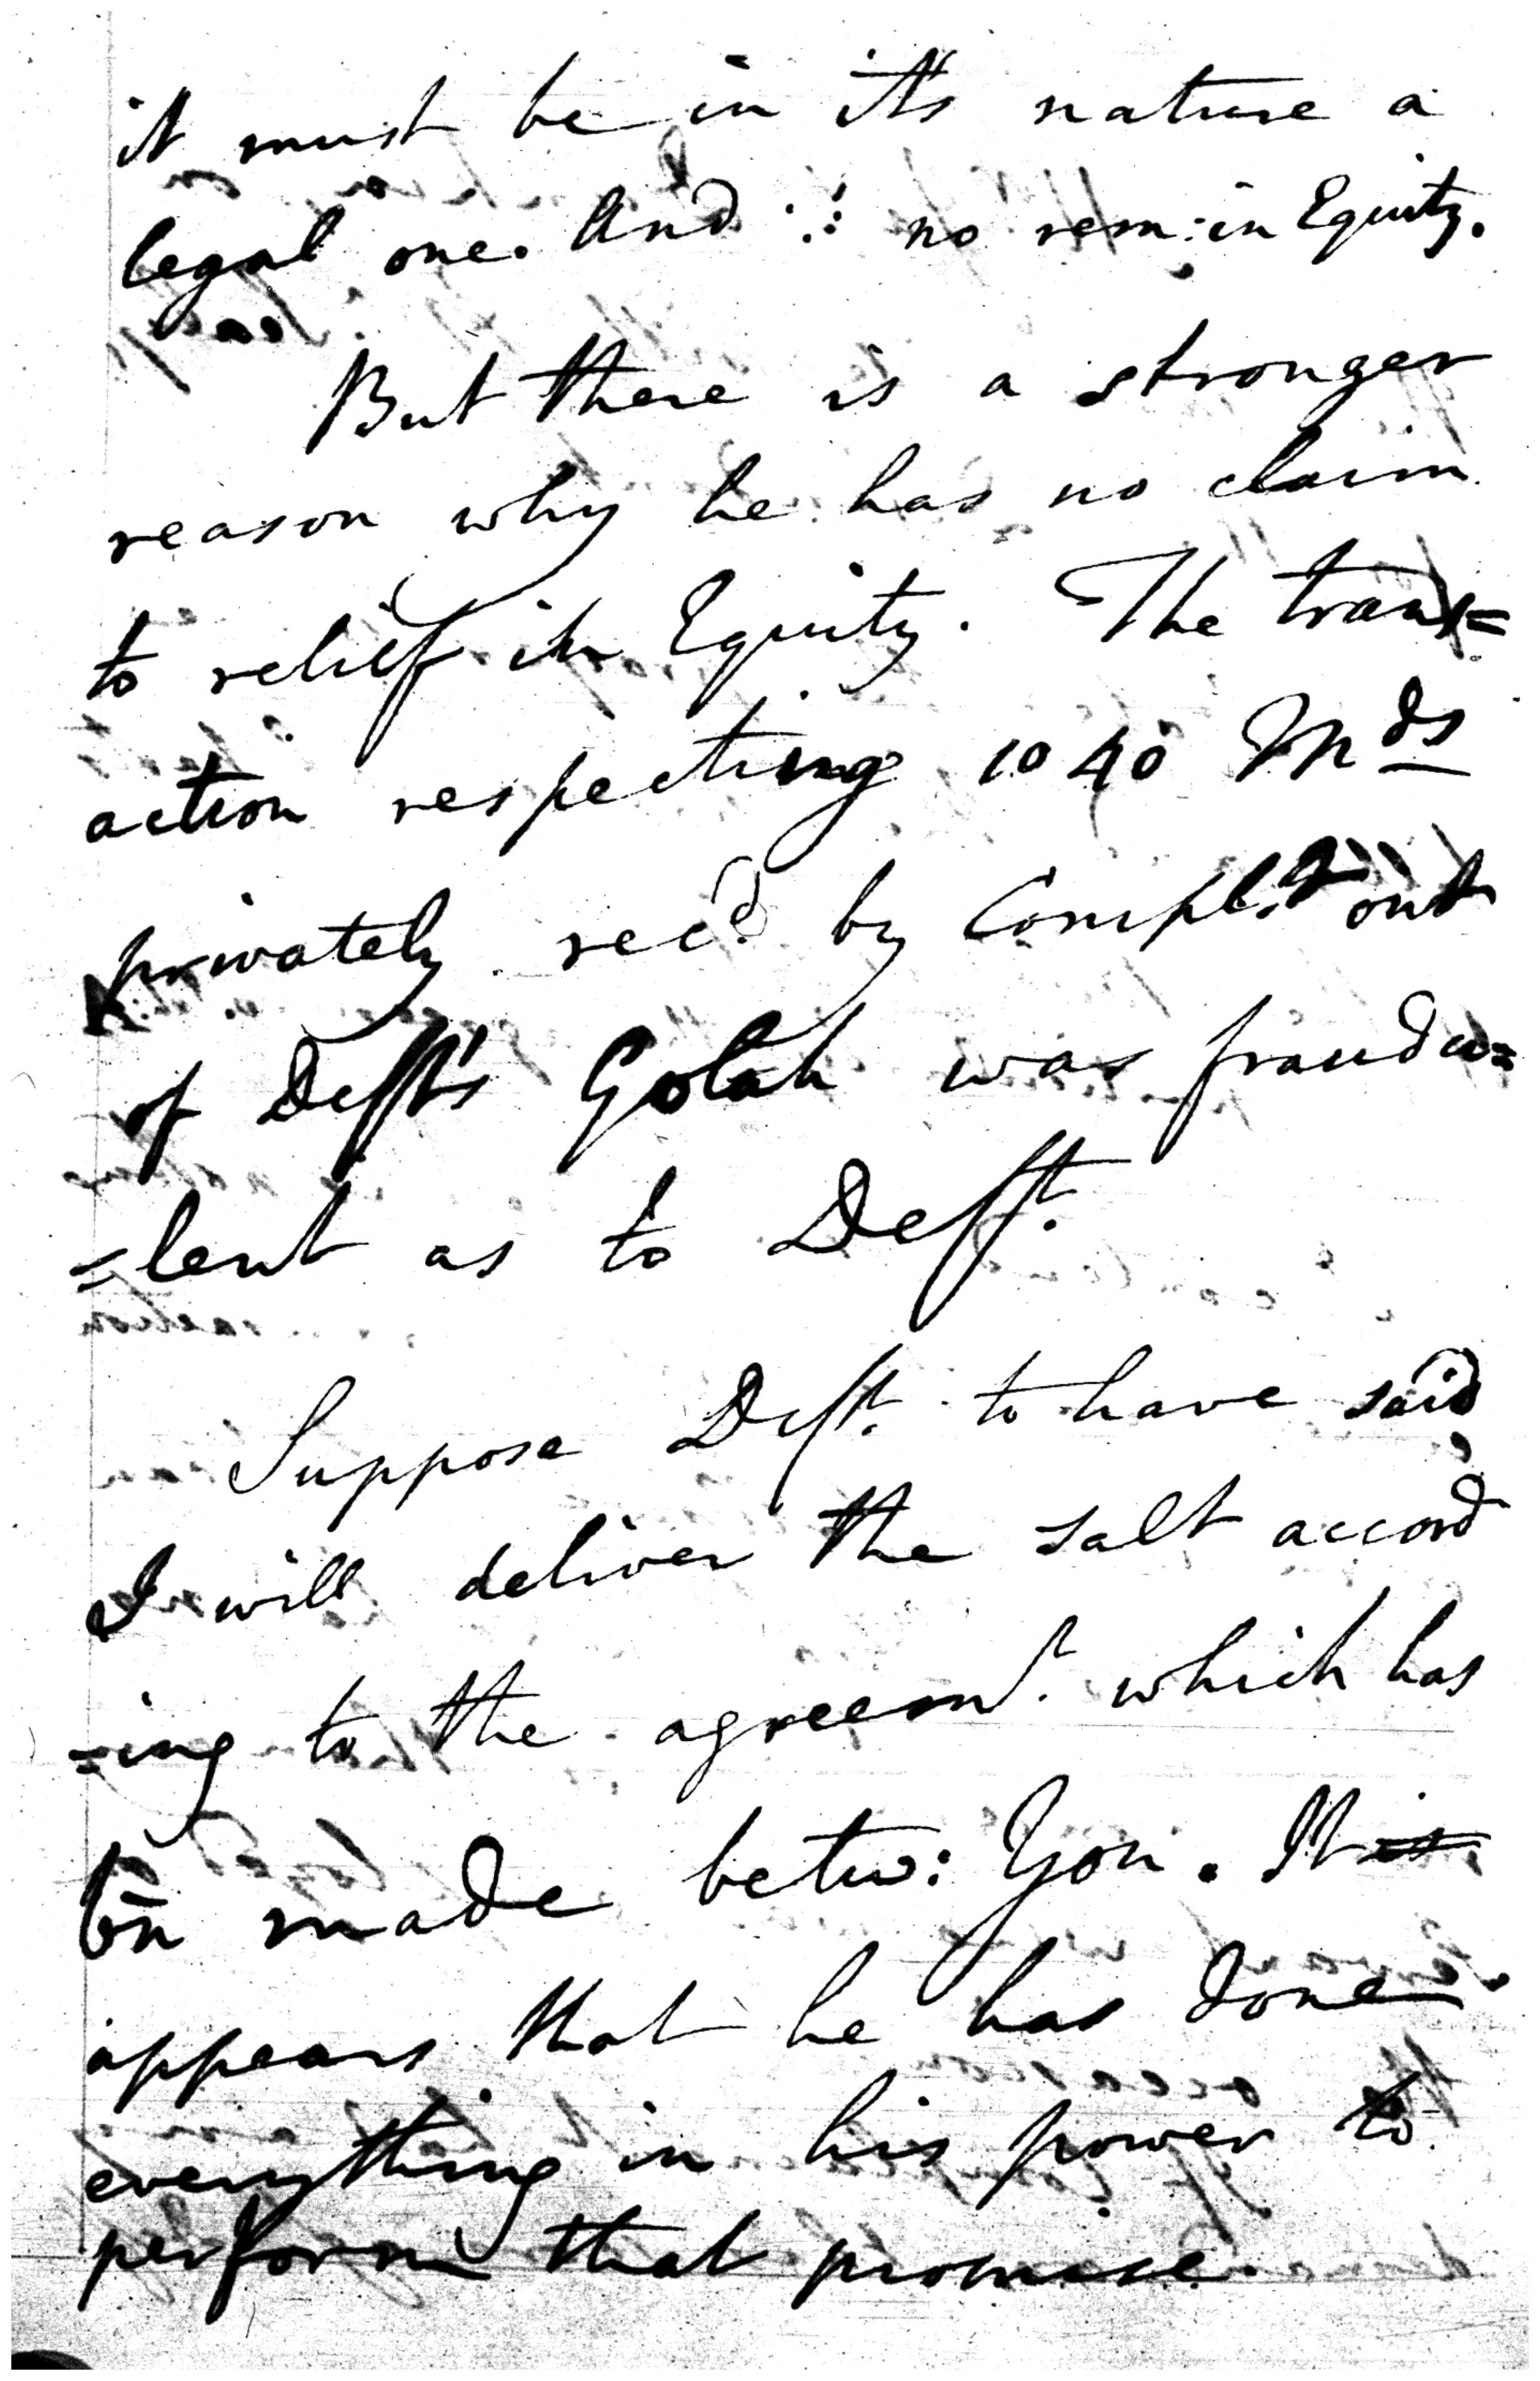 it must be in it's nature a
legal one. And ∴ no rem: in Equity.
But there is a stronger
reason why he has no claim
to relief in Equity. The trans=
action respecting 1040 Mds
privately rec'd by Complt out
of Deft's Golah was fraudu=
=lent as to Deft.
Suppose Deft. to have said
I will deliver the salt accord
=ing to the agreemt. which has
bn made betw: You. It is
appears that he has done
everything in his power to
perform that promise.